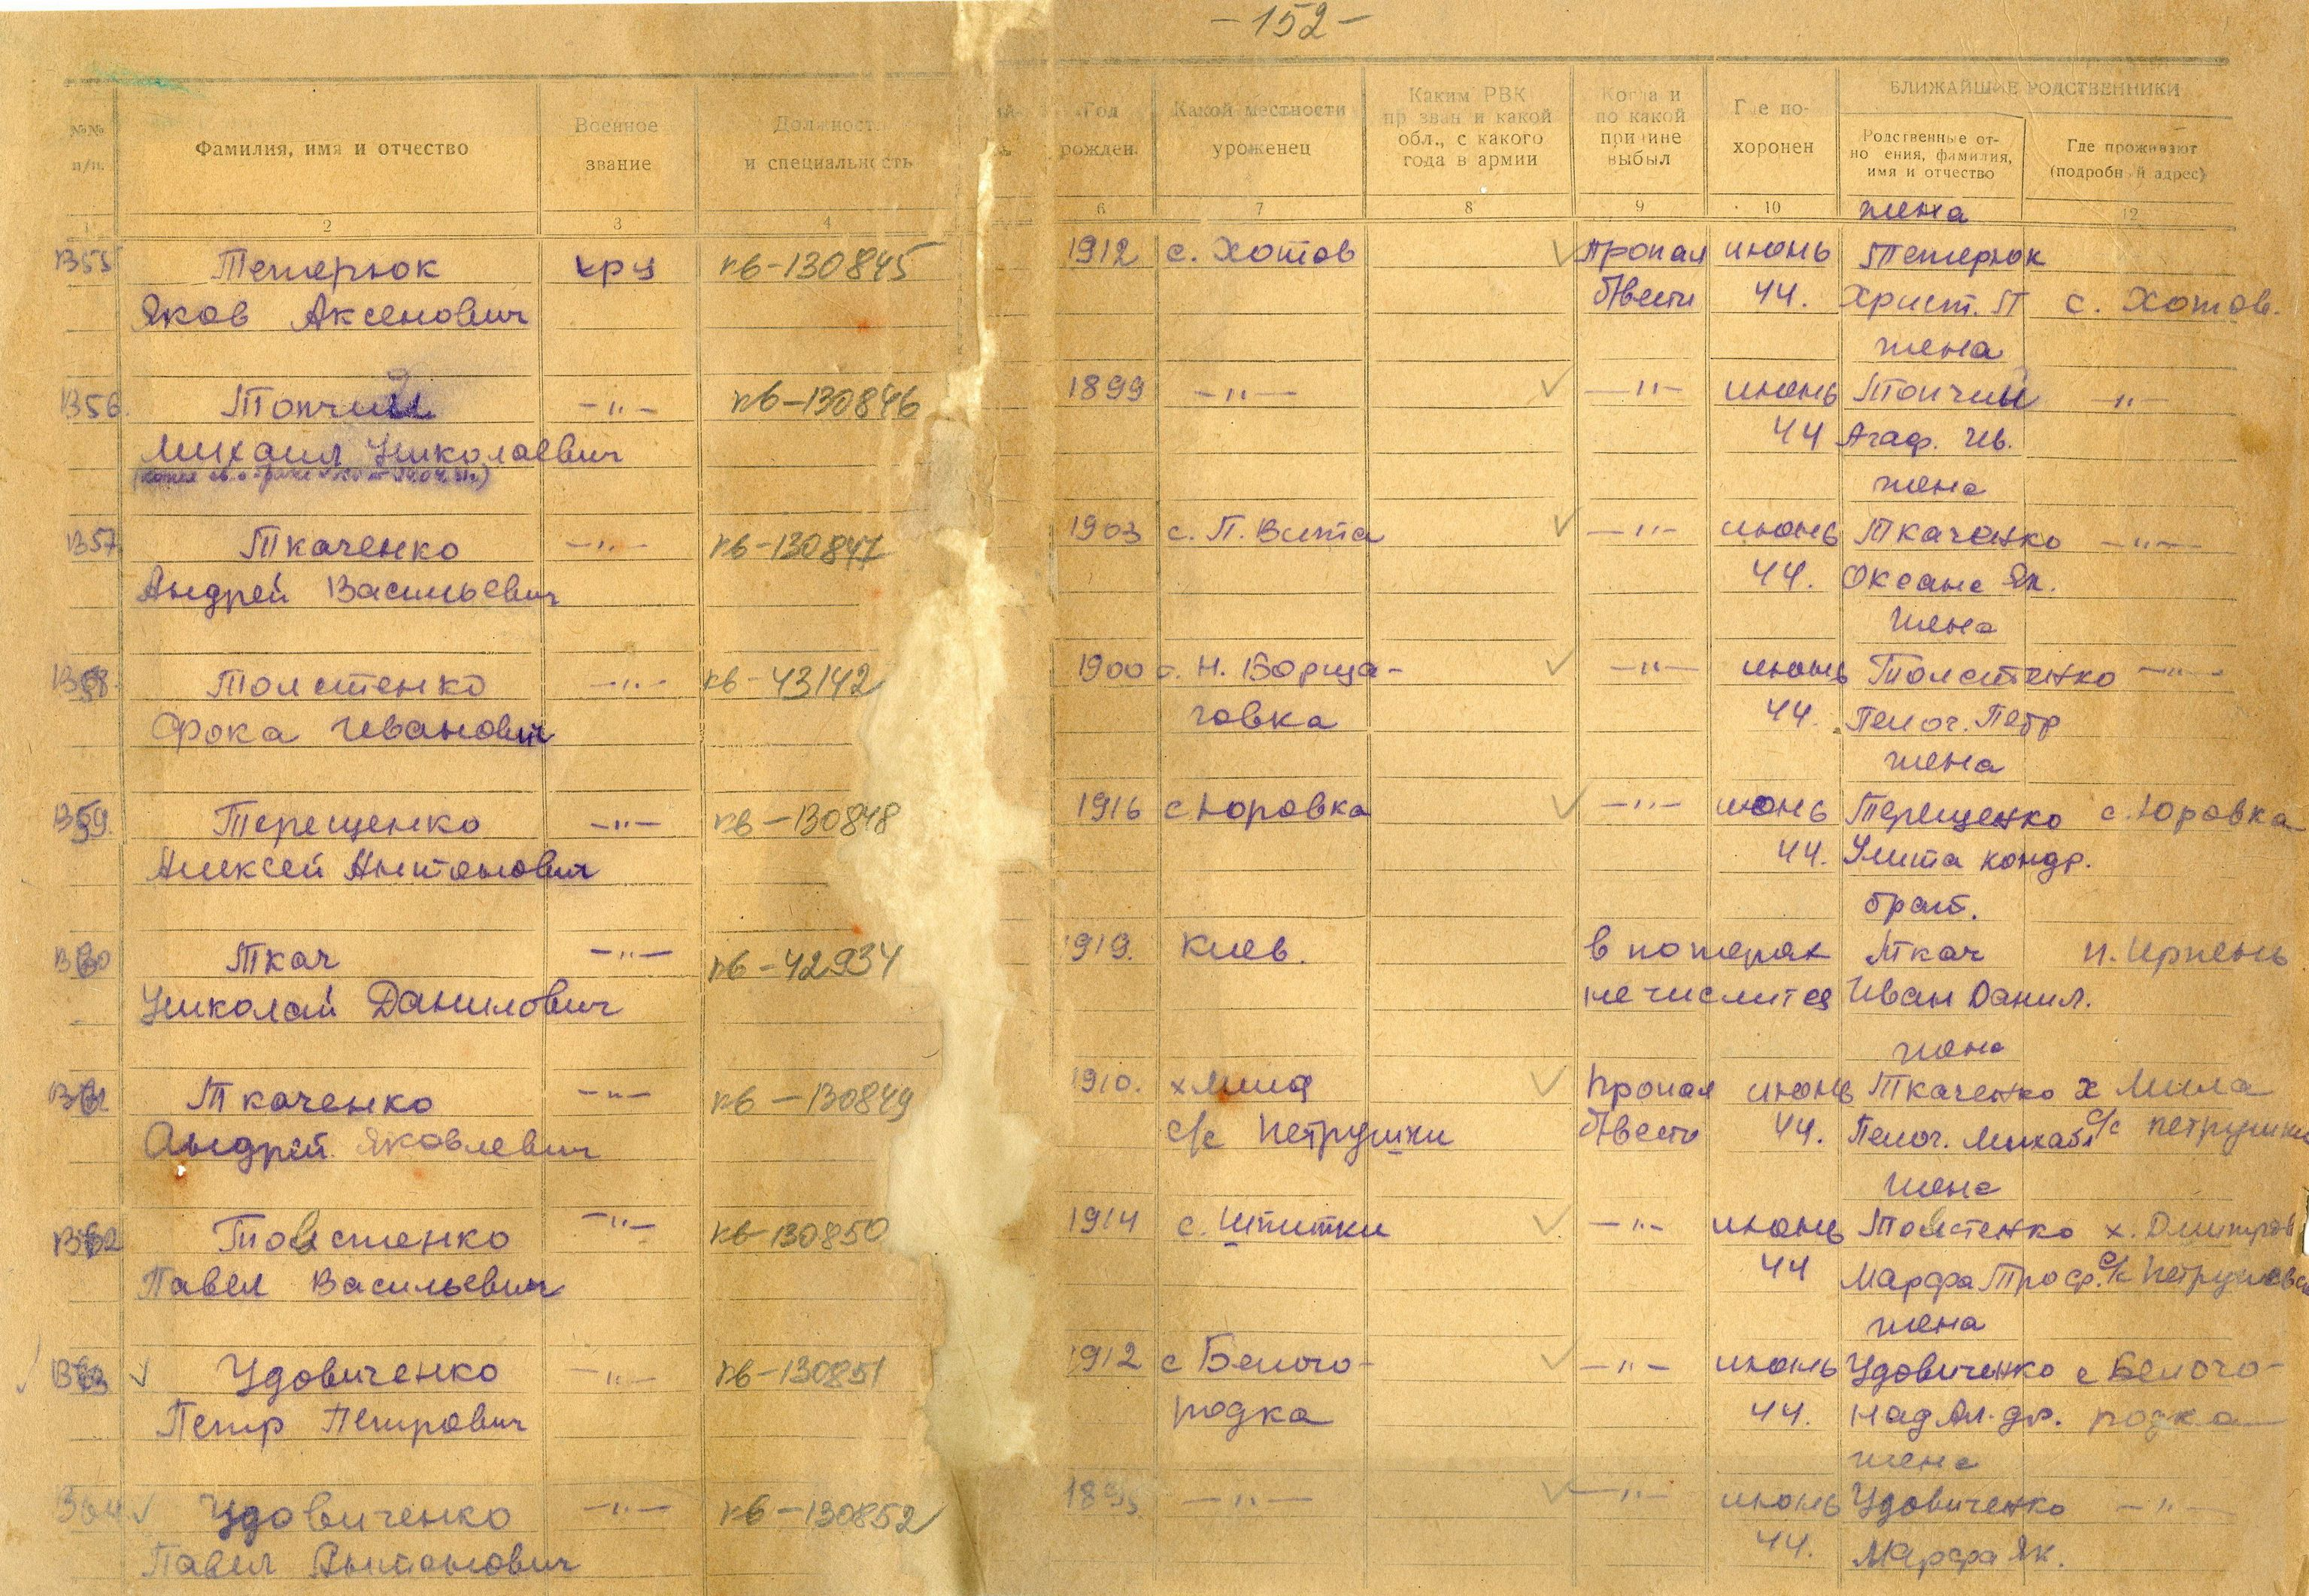 -152-
№№ п/п.
Фамилия, имя и отчество
Военное звание
Должность и специальность
Год рожден.
Какой местности уроженец
Каким РВК призван и какой обл., с какого года в армии
Когда и по какой причине выбыл
Где похоронен
БЛИЖАЙШИЕ РОДСТВЕННИКИ
Родственные отношения, фамилия, имя и отчество
Где проживают (подробный адрес)
1 2 3 4 6 7 8 9 10 12
жена
В55 Тетерюк кр-ц кв-130845 1912 с. Хотов Пропал июнь Тетерюк
Яков Аксенович б/вести 44. Христ. П с. Хотов.
жена
В56. Топчий -"- кв-130846 1899 -"- -"- июнь Топчий -"-
Михаил Николаевич 44 Агаф. Ив.
жена
В57 Ткаченко -"- кв-130847 1903 с. П. Вита -"- июнь Ткаченко -"-
Андрей Васильевич 44. Оксана Як.
жена
В58. Толстенко -"- кв-43142 1900 с. Н. Борща- -"- июнь Толстенко -"-
Фока Иванович говка 44. Пелаг. Петр
жена
В59. Терещенко -"- кв-130848 1916 с Юровка -"- июнь Терещенко с. Юровка
Алексей Антонович 44. Улита Кондр.
брат.
В60 Ткач -"- кв-42934 1919. Киев. в потерях Ткач п. Ирпень
Николай Данилович не числится Иван Данил.
жена
Ткаченко -"- кв-130849 1910. х Мила Пропал июнь Ткаченко х Мила
Андрей Яковлевич с/с Петрушки б/вести 44. Пелаг. Михайл с/с Петрушки
жена
В62 Товстенко -"- кв-130850 1914 с. Шпитки -"- июнь Товстенко х. Дмитров
Павел Васильевич 44 Марфа Троф. с/с
жена
В63 Удовиченко -"- кв-130851 1912 с Белого- -"- июнь Удовиченко с Белого-
Петр Петрович родка 44. родка
жена
В64 Удовиченко -"- кв-130852 -"- -"- июнь Удовиченко -"-
Павел Антонович 44. Марфа Як.